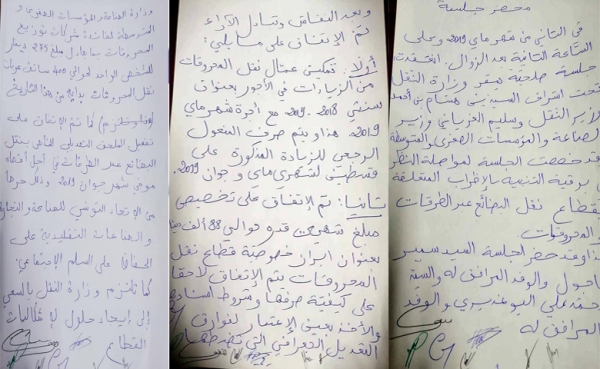 محضر جلسة
في الثاني من شهر ماي 2019 وعلى
الساعة الثانية بعد الزوال، انعقدت
جلسة صلحية بمقر وزارة النقل
تحت اشراف السيدين هشام بن أحمد
وزير النقل وسليم الفرياني وزير
الصناعة والمؤسسات الصغرى والمتوسطة
وقد خصصت الجلسة لمواصلة النظر
في برقية التنبيه بالإضراب المتعلقة
بقطاع نقل البضائع عبر الطرقات
والمحروقات
هذا وقد حضر الجلسة السيد سمير
والوفد المرافق له والسيد
علي البوغديري والوفد
المرافق له
وبعد النقاش وتبادل الآراء
تم الإتفاق على ما يلي:
أولا: تمكين عمال نقل المحروقات
من الزيادات في الأجور بعنوان
سنتي 2018-2019 مع أجرة شهر ماي
2019 هذا ويتم صرف المفعول
الرجعي للزيادة المذكورة على
قسطين لشهري ماي وجوان 2019.
ثانيا: تم الإتفاق على تخصيص
مبلغ قدره حوالي 88 ألف
بعنوان إبراز خصوصية قطاع نقل
المحروقات يتم الإتفاق لاحقا
على كيفية صرفها وشروط اسنادها
والأخذ بعين الإعتبار لفوارق
التعديل الجغرافي التي تضبطها
وزارة الصناعة والمؤسسات الصغرى و
المتوسطة لفائدة شركات توزيع
المحروقات بما يعادل مبلغ دينار
للشخص الواحد لحوالي 400 سائق عربات
نقل المحروقات بداية من هذا التاريخ
كما تم الإتفاق على
تفعيل الملحق التعديلي الخاص بنقل
البضائع عبر الطرقات في أجل أقصاه
موفى شهر جوان 2019 وذلك حرصا
من الإتحاد التونسي للصناعة والتجارة
والصناعات التقليدية على
الحفاظ على السلم الإجتماعي.
كما تلتزم وزارة النقل بالسعي
إلى إيجاد حلول لإشكاليات
القطاع